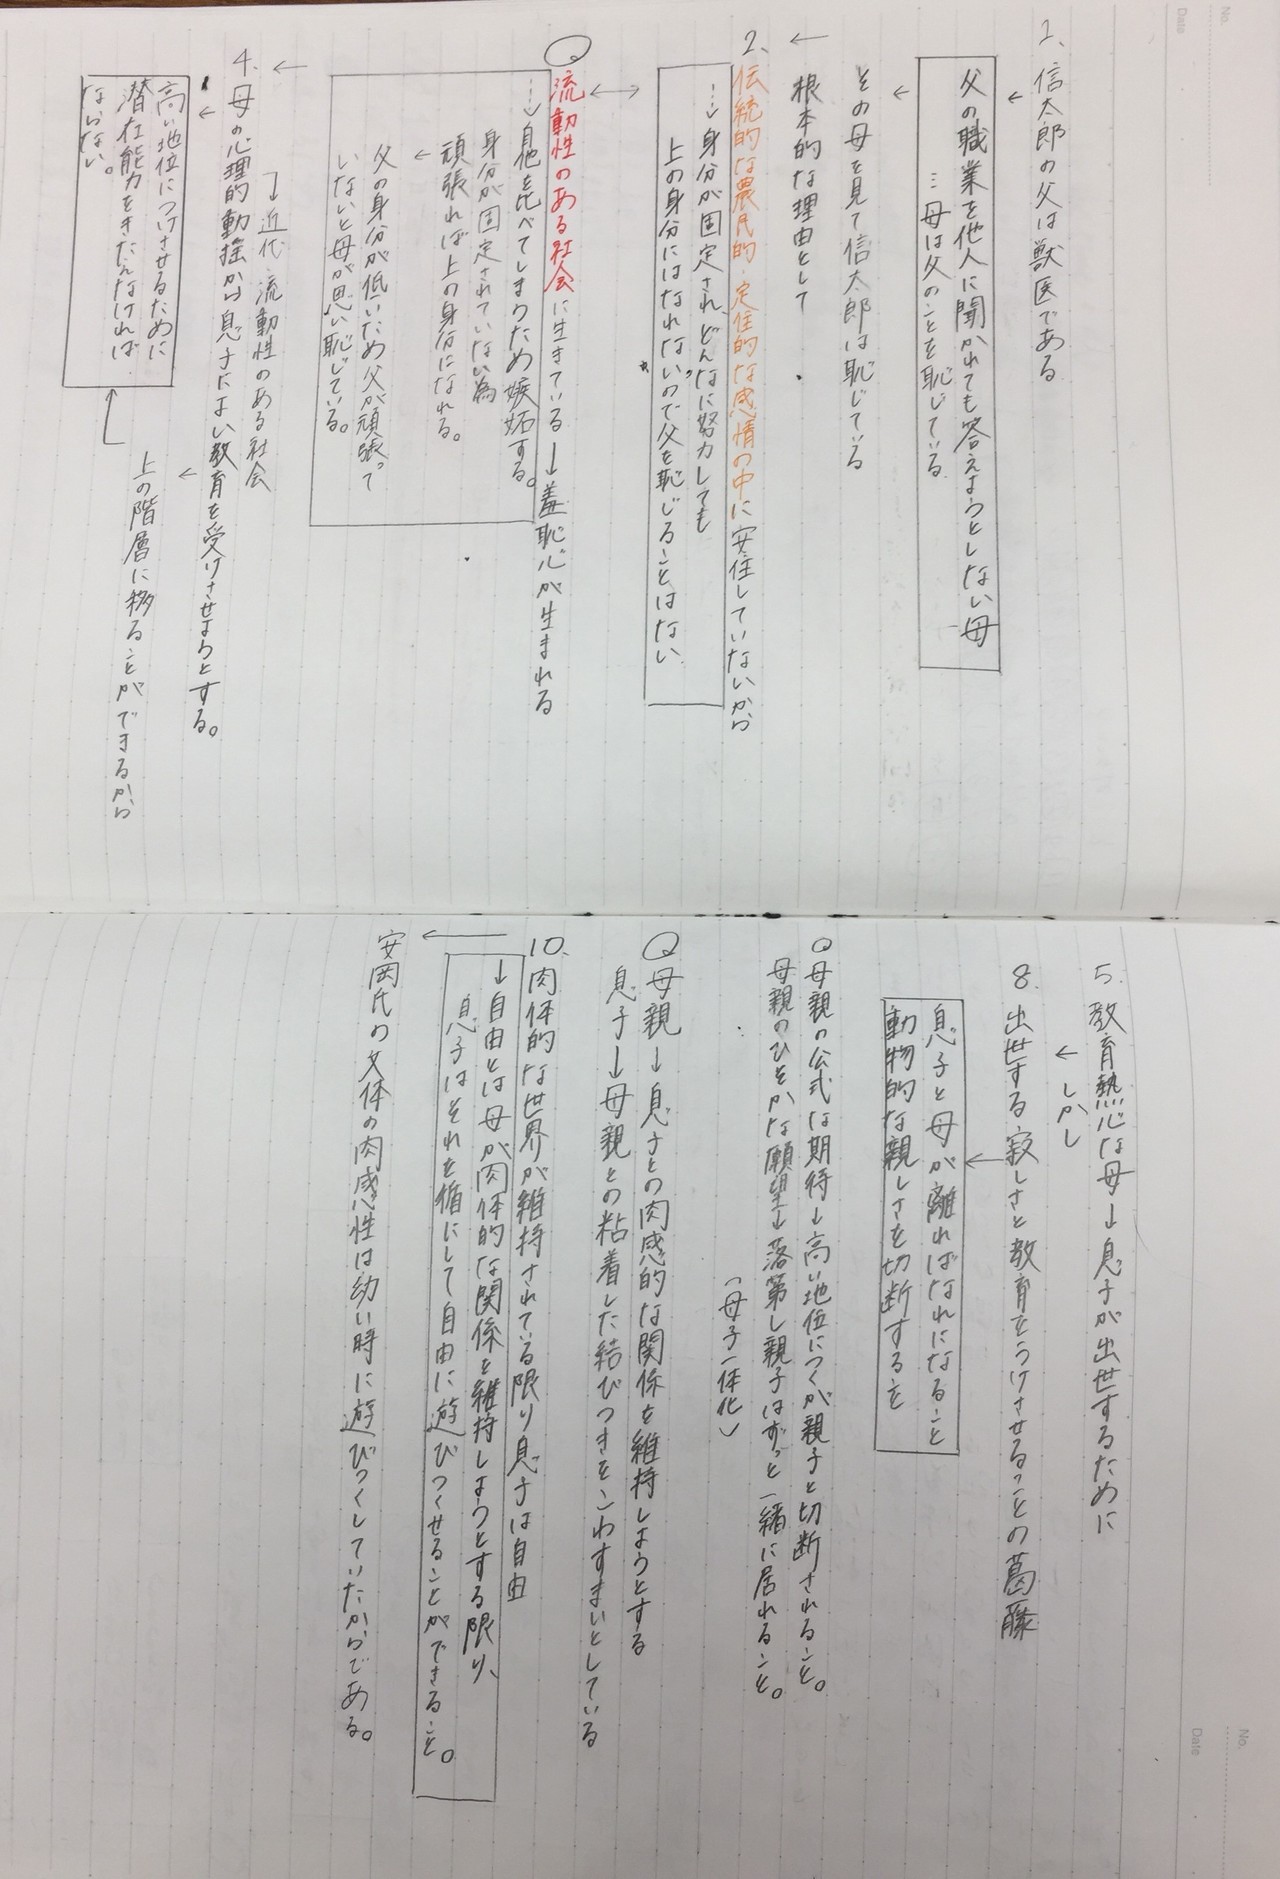 No.
Date
1、信太郎の父は獣医である
↓
父の職業を他人に聞かれても答えようとしない母
…母は父のことを恥じている
↓
その母を見て信太郎は恥じている
根本的な理由として
↓
2、伝統的な農民的・定住的な感情の中に安住していないから
…→身分が固定され、どんなに努力しても
上の身分にはなれないので父を恥じることはない
↕
○流動性のある社会に生きている→羞恥心が生まれる
…→自他を比べてしまうため嫉妬する。
身分が固定されていない為
頑張れば上の身分になれる。
↓
父の身分が低いため父が頑張って
いないと母が思い恥じている。
↓
→近代 流動性のある社会
4、母の心理的動揺から息子によい教育を受けさせようとする。
↓
高い地位につけさせるために
潜在能力をきたえなければ
ならない。
↓
上の階層に移ることができるから
No.
Date
5、教育熱心な母→息子が出世するために
↓しかし
8、出世する寂しさと教育をうけさせることの葛藤
↓
息子と母が離ればなれになること
動物的な親しさを切断することを
○母親の公式な期待→高い地位につくが親子と切断されること。
母親のひそかな願望→落第し親子はずっと一緒に居れること。
(母子一体化)
○母親→息子との肉感的な関係を維持しようとする
息子→母親との粘着した結びつきをこわすまいとしている
10、肉体的な世界が維持されている限り息子は自由
→自由とは母が肉体的な関係を維持しようとする限り、
息子はそれを循にして自由に遊びつくせることができること。
↓
安岡氏の文体の肉感性は幼い時に遊びつくしていたからである。